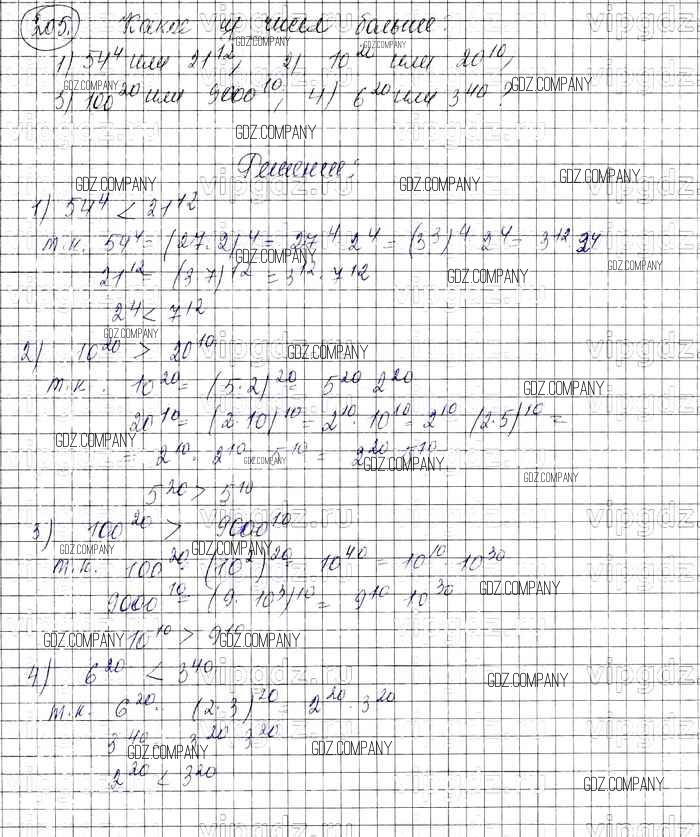 205. Какое из чисел больше:
1) 54⁴ или 21¹², 2) 10²⁰ или 20¹⁰,
3) 100²⁰ или 9000¹⁰, 4) 6²⁰ или 3⁴⁰?
Решение:
1) 54⁴ < 21¹²
т.к. 54⁴ = (27·2)⁴ = 27⁴·2⁴ = (3³)⁴ 2⁴ = 3¹² 2⁴
21¹² = (3·7)¹² = 3¹²·7¹²
2⁴ < 7¹²
2) 10²⁰ > 20¹⁰
т.к. 10²⁰ = (5·2)²⁰ = 5²⁰ 2²⁰
20¹⁰ = (2·10)¹⁰ = 2¹⁰·10¹⁰ = 2¹⁰ (2·5)¹⁰ =
= 2¹⁰·2¹⁰ 5¹⁰ = 2²⁰ 5¹⁰
5²⁰ > 5¹⁰
3) 100²⁰ > 9000¹⁰
т.к. 100²⁰ = (10²)²⁰ = 10⁴⁰ = 10¹⁰ 10³⁰
9000¹⁰ = (9·10³)¹⁰ = 9¹⁰ 10³⁰
10¹⁰ > 9¹⁰
4) 6²⁰ < 3⁴⁰
т.к. 6²⁰ = (2·3)²⁰ = 2²⁰·3²⁰
3⁴⁰ = 3²⁰ 3²⁰
2²⁰ < 3²⁰
GDZ.COMPANY
vipgdz.ru